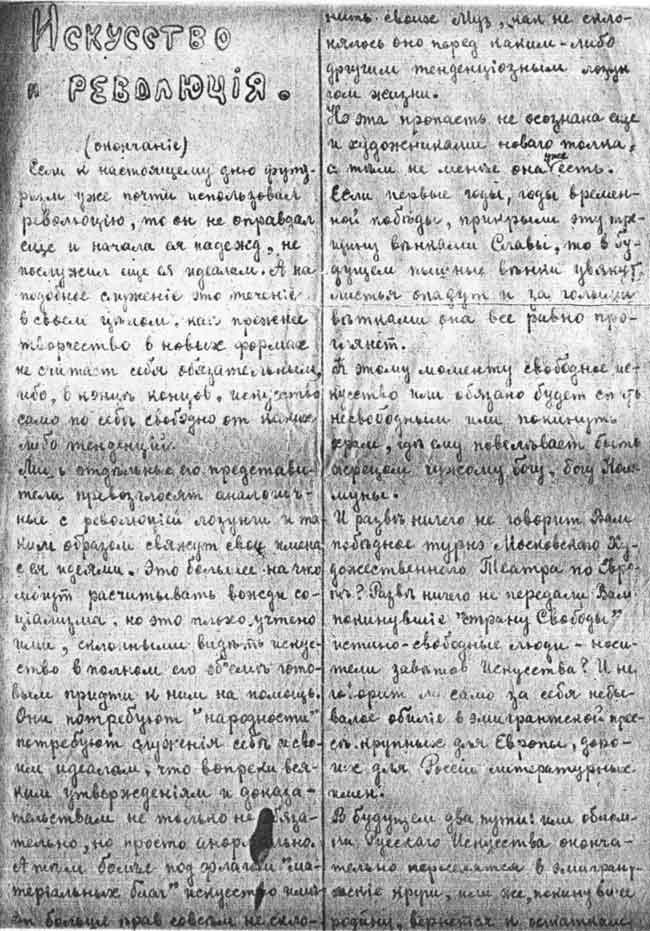 Искусство
и РЕВОЛЮЦІЯ.
(окончаніе)
Если к настоящему дню футу-
ризм уже почти использовал
революцію, то он не оправдал
еще и начала ея надежд, не
послужил еще ея идеалам. А на
подобное служеніе это теченіе
в своем цѣлом, как
творчество в новых формах
не считает себя обязательным,
ибо, в концѣ концов, искусство
само по себѣ свободно от каких-
либо тенденцій.
Лишь отдѣльные его представи-
тели превозгласят аналогич-
ные с революціей лозунги и та-
ким образом свяжут свои имена
с ея идеями. Это большее на что
могут расчитывать вожди со-
ціализма, но это плохо учтено
ими, склонными видѣть искус-
ство в полном его объемѣ гото-
вым придти к ним на помощь.
Они потребуют "народности"
потребуют служенія себѣ и сво-
им идеалам, что вопреки вся-
ким утвержденіям и доказа-
тельствам не только не обяза-
тельно, но просто анормально.
А тѣм болѣе под флагом "ма-
теріальных благ" искусство имѣ-
ет больше прав совсѣм не скло-
нить своих Муз, как не скло-
нялось оно перед каким-либо
другим тенденціозным лозун
гом жизни.
Но эта пропасть не осознана еще
и художниками новаго толка,
а тѣм не менѣе она уже есть.
Если первые годы, годы времен-
ной побѣды, прикрыли эту тре-
щину вѣнками Славы, то в бу-
дущем пышные вѣнки увянут
листья опадут и за голыми
вѣтками она все равно про-
глянет.
К этому моменту свободное ис-
кусство или обязано будет стать
несвободным или покинуть
храм, гдѣ ему повелѣвает быть
жрецом чужому богу, богу Ком-
муны.
И развѣ ничего не говорит Вам
побѣдное турнэ Московскаго Ху-
дожественного Театра по Евро-
пѣ? Развѣ ничего не передали Вам
покинувшіе "страну Свободы"
истино-свободные люди - носи-
тели завѣтов Искусства? И не
говорит ли само за себя небы-
валое обиліе в эмигрантской прес-
сѣ крупных для Европы, доро-
гих для Россіи литературных
имен.
В будущем два пути: или обном-
ки Русскаго Искусства оконча-
тельно переселятся в эмигрант-
скіе круги, или же, покинувшее
родину, вернется к остаткам